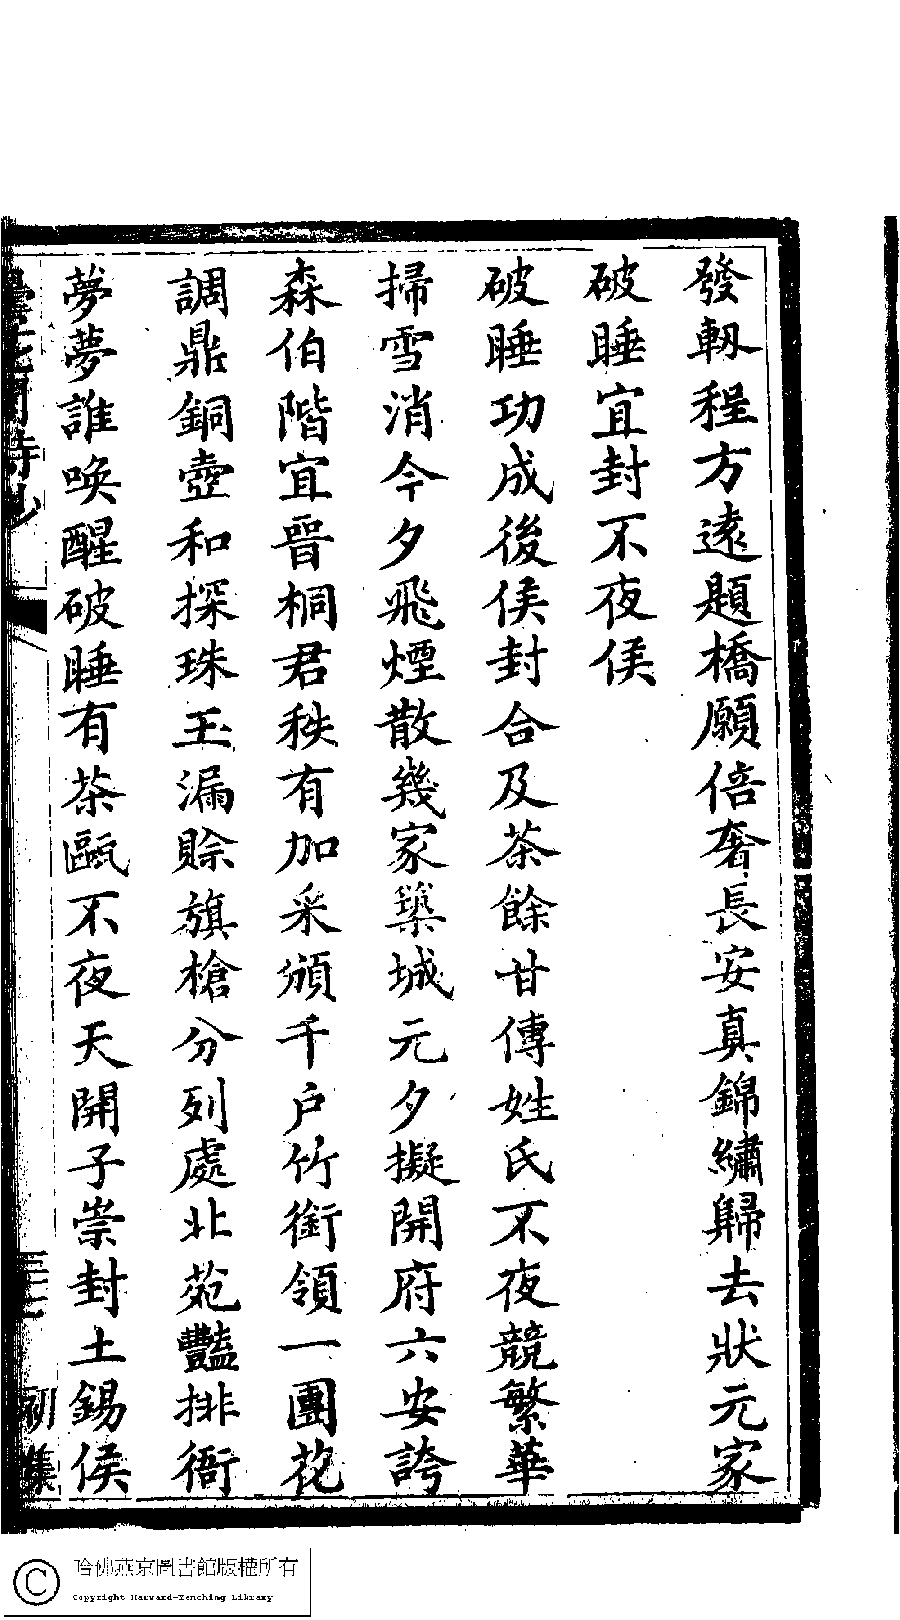 發軔程方遠題橋願倍奢長安真錦繡歸去狀元家
破睡宜封不夜侯
破睡功成後侯封合及茶餘甘傳姓氏不夜競繁華
掃雪消今夕飛煙散幾家築城元夕擬開府六安誇
森伯階宜晉桐君秩有加采頒千戶竹銜領一團花
調鼎銅壺和探珠玉漏賒旗槍分列處北苑豔排衙
夢夢誰喚醒破睡有茶甌不夜天開子崇封土錫侯
初集
哈佛燕京圖書館版權所有
Copyright Harvard-Yenching Library